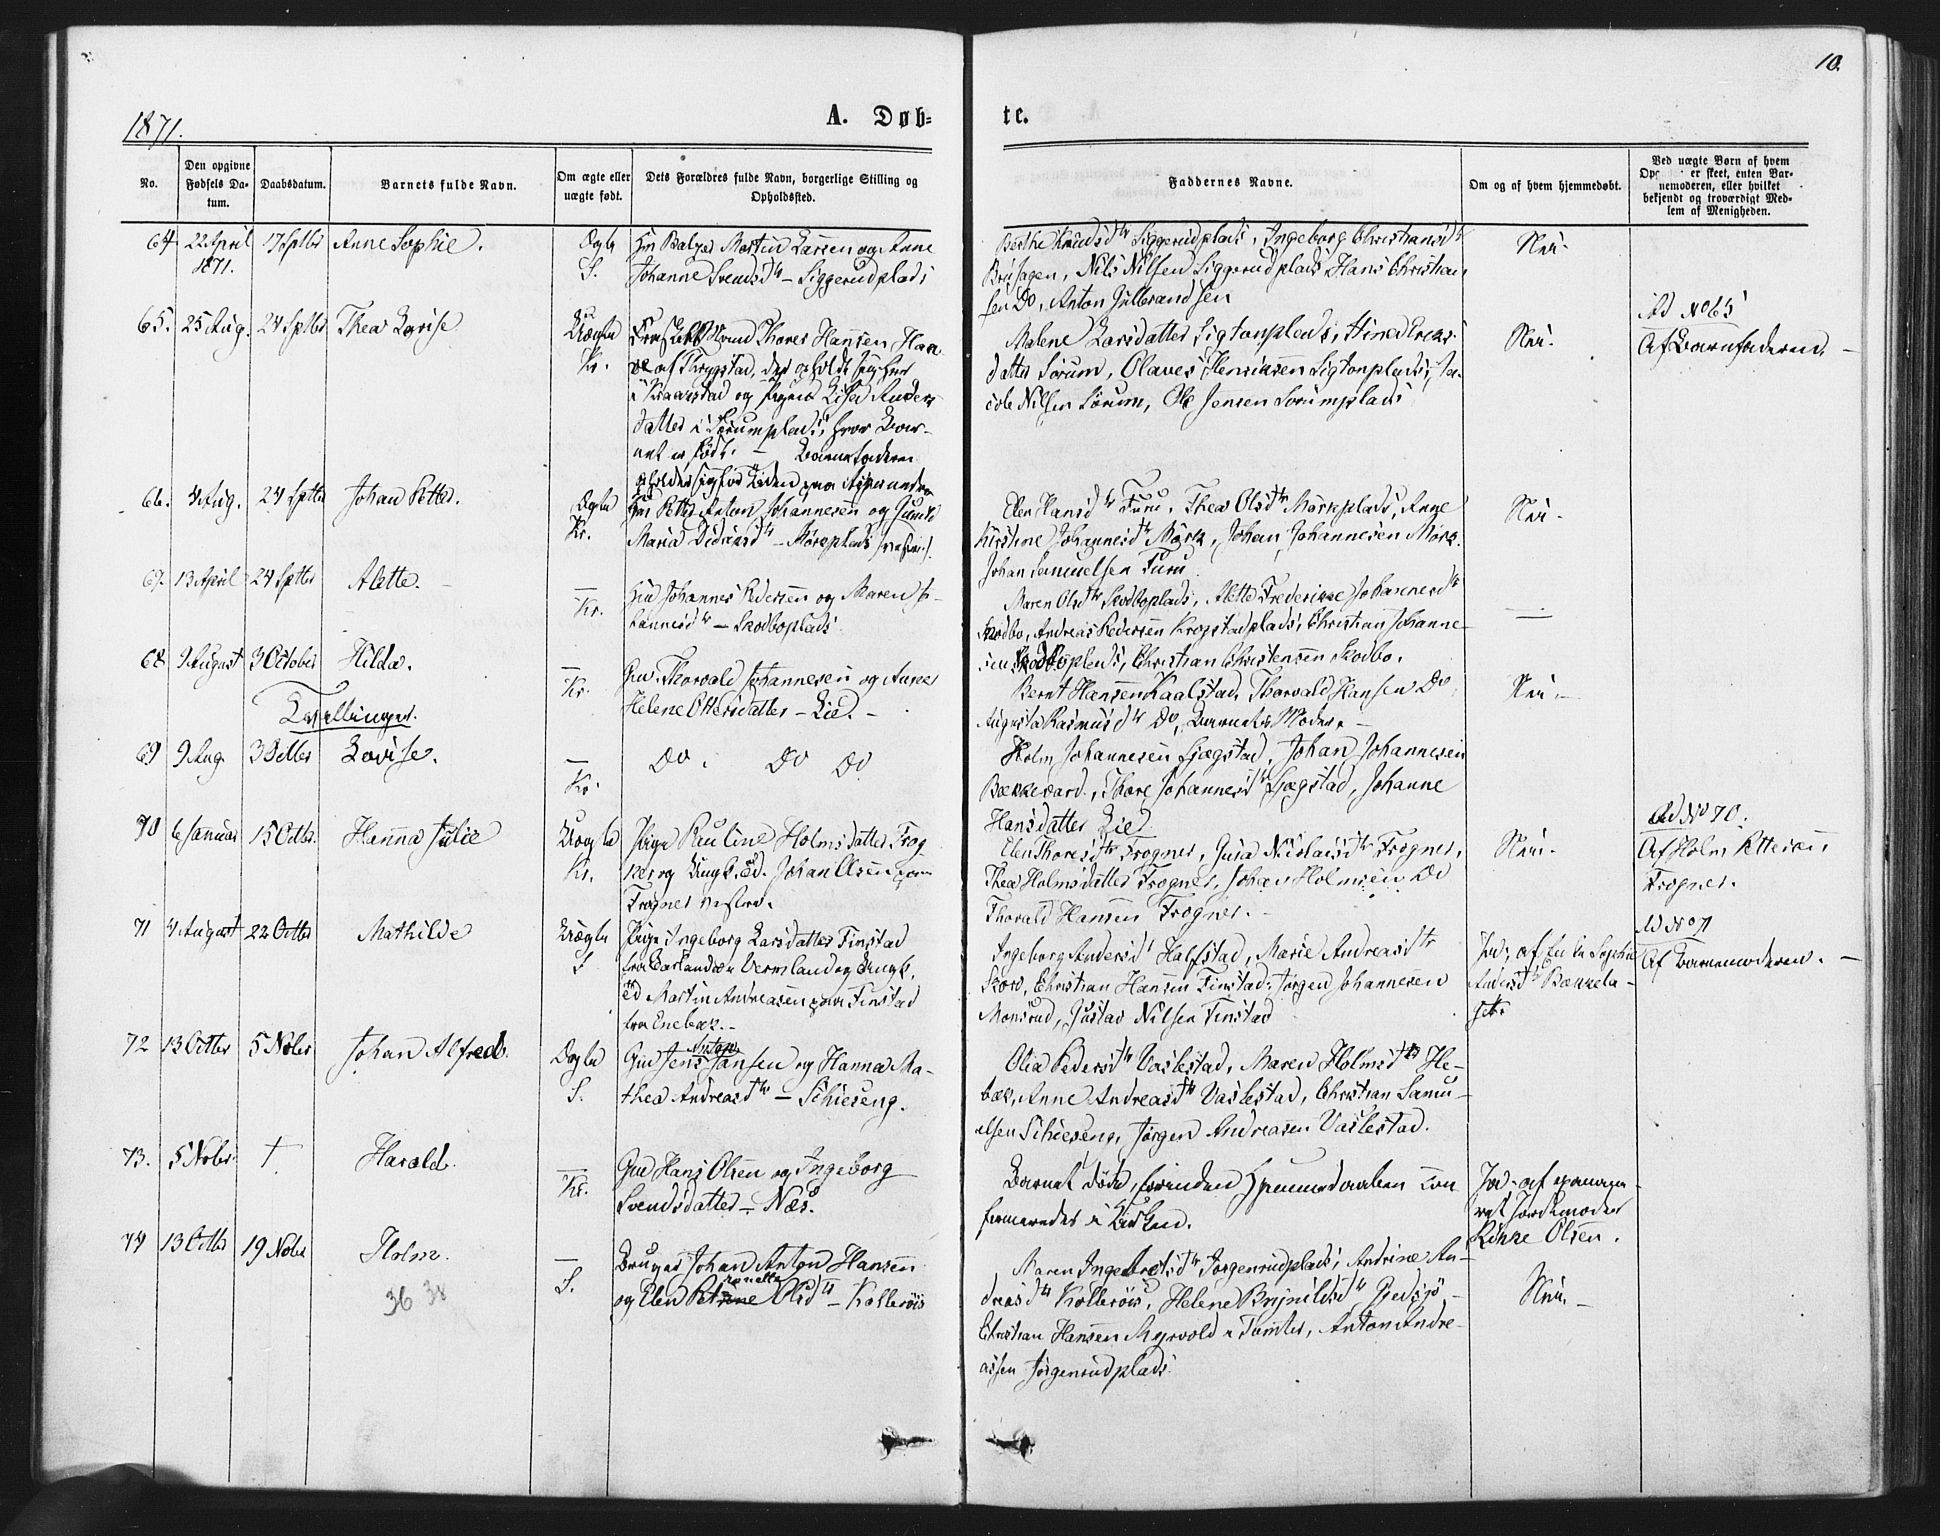 10.
1871.
A. Døb-
te.
No.
Den opgivne Fødsels Da-tum.
Daabsdatum.
Barnets fulde Navn.
Om ægte eller uægte født.
Dets Forældres fulde Navn, borgerlige Stilling og Opholdssted.
Faddernes Navne.
Om og af hvem hjemmedøbt.
Ved uægte Børn af hvem Op er skeet, enten Bar-nemoderen, eller hvilket bekjendt og troværdigt Med-lem af Menigheden.
64 22 April 17 Sptbr Anne Sophie. Ægte
1871. S.
Martin Larsen og Anne
Johanne Svendsdtr - Siggerudplads
Berthe Knudsdtr Siggerudplads, Ingeborg Christiansdtr
Nils Nilsen Siggerudplads Hans Christian
sen Do, Anton Gulbrandsen
Nei.
65. 25 Aug. 24 Sptbr Thea Lovise Uægte
Kr.
Thores Hansen Haa
af Thrygstad, der opholdt sig her
i Kraakstad og Pigen Lisa Anders
datter i Sørumplads, hvor Bar-
net er født. - Barnefaderen
opholder sig for Tiden paa
Malene Larsdatter Sigtonplads, Stine Erics
datter Sørum, Olaves Henriksen Sigtonplads, Ja-
cob Nilsen Sörum, Ole Jensen Sørumplads
Nei.
Ad No 65
Af Barnefaderen.
66. 4 Aug. 24 Sptbr Johan Petter. Ægte
Kr.
Petter Anton Johannesen og
Maria - Mörkplads
Elen Hansdtr Furu, Thea Olsdtr Mörkplads, Anne
Kirstine Johannesdtr Mörk, Johan Johannesen Mörk.
Johan Samuelsen Furu
Nei.
67. 13 April 24 Sptbr Alette. —
Kr.
Johannes Pedersen og Maren Jo-
hannesdtr - Skodboplads
Maren Olsdtr Skodboplads, Alette Frederikke Johannesdtr
Skodbo, Andreas Pedersen Krogstadplads, Christian Johanne-
sen Skodboplads, Christian Christensen Skodbo.
—
68 9 August 3 October Hilda. —
Kr.
Thorvald Johannesen og Anne
Helene Ottersdatter - Lie. -
Bernt Hansen Kaalstad, Thorvald Hansen Do
Augusta Rasmusdtr Do, Barnets Moder. -
Nei. -
Tvillinger.
69 9 Aug. 3 Octbr Lovise. —
Kr.
Do. Do Do
Holm Johannesen Ljøgstad, Johan Johannesen
Bækkevard, Thore Johannesdtr Ljøgstad, Johanne
Hansdatter Lie
70 6 Januar 15 Octbr. Hanna Julie Uægte
Kr.
Pige Pauline Holmsdatter Frog
ner og Ungk. ed. Johan Olsen
Frogner
Elen Thoresdtr Frogner, Gusta Nicolaisdtr Frogner,
Thea Holmsdatter Frogner, Johan Holmsen Do
Thorald Hansen Frogner. -
Nei.
Ad No 70.
Af Holm Pettersen
Frogner.
71 4 August 22 Octbr Mathilde Uægte
S
Pige Ingeborg Larsdatter Finstad
fra Vermland og Ungk.
Martin Andreasen paa Finstad
fra Enebak. -
Ingeborg Andersdtr Halfstad, Marie Andreasdtr
Skov, Christian Hansen Finstad, Jørgen Johannesen
Monsrud, Gustav Nilsen Finstad
Ja, af Sophie
Andersdtr Bækkela-
Ad No 71
Af Barnemoderen. -
72 13 Octbr 5 Nvbr Johan Alfred. Ægte
S.
Anton
Jens Jansen og Hanna Ma-
thea Andreasdtr - Schieseng.
Olia Pedersdtr Vaslestad, Maren Holmsdtr He-
bæk, Anne Andreasdtr Vaslestad, Christian Samu-
elsen Schieseng, Jørgen Andreasen Vaslestad.
73. 5 Nvbr † Harald. —
Kr.
Hans Olsen og Ingeborg
Svendsdatter - Næs.
Barnet døde, forinden Hjemmedaaben con
fermeredes i Kirken.
Ja - af examine-
ret Jordemoder
Rikke Olsen.
74 13 Octbr 19 Nvbr Holm. —
S.
Johan Anton Hansen
ronella
og Elen Petrine Olsdtr - Kolleröis
36 38
Maren Ingebretsdtr Jørgenrudplads, Andrine An-
dreasdtr Kolleröis, Helene Brynildsdtr
Christian Hansen Myrvold Tomter, Anton Andre-
assen Jørgenrudplads.
Nei. -